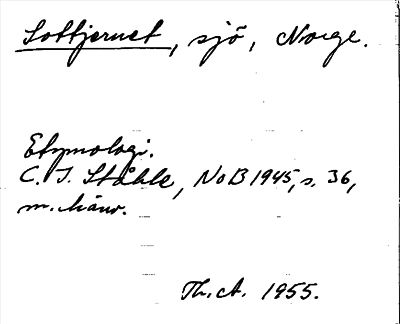 Sottjernet, sjö, Norge.
Etymologi.
C. I. Ståhle, NoB 1945, s. 36,
m. hänv.
Th. A. 1955.